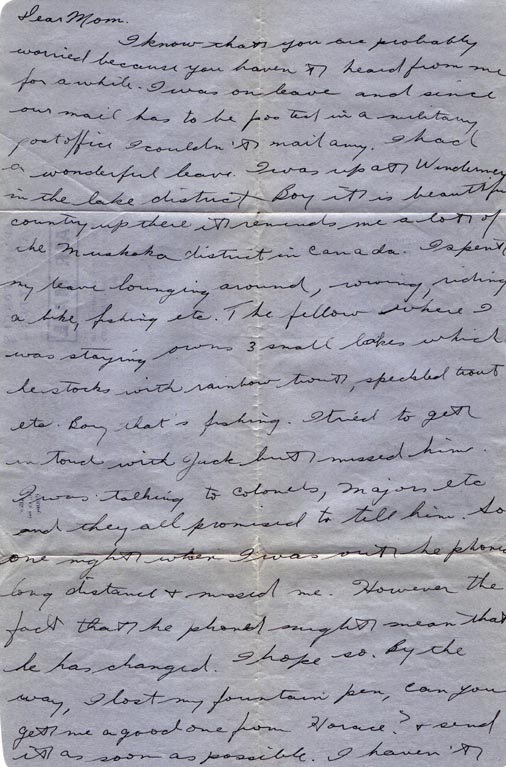 Dear Mom.
I know that you are probably
worried because you haven't heard from me
for a while. I was on leave and since
our mail has to be posted in a military
postoffice I couldn't mail any. I had
a wonderful leave. I was up at Windermere
in the lake district Boy it is beautiful
country up there it reminds me a lot of
the Muskoka district in Canada. I spent
my leave lounging around, rowing, riding
a bike, fishing etc. The fellow where I
was staying owns 3 small lakes which
he stocks with rainbow trout, speckled trout
etc. Boy that's fishing. I tried to get
in touch with Jack but missed him.
I was talking to colonels, Majors etc
and they all promised to tell him. So
one night when I was out he phoned
long distance & missed me. However the
fact that he phoned might mean that
he has changed. I hope so. By the
way, I lost my fountain pen, can you
get me a good one from Horace? & send
it as soon as possible. I haven't